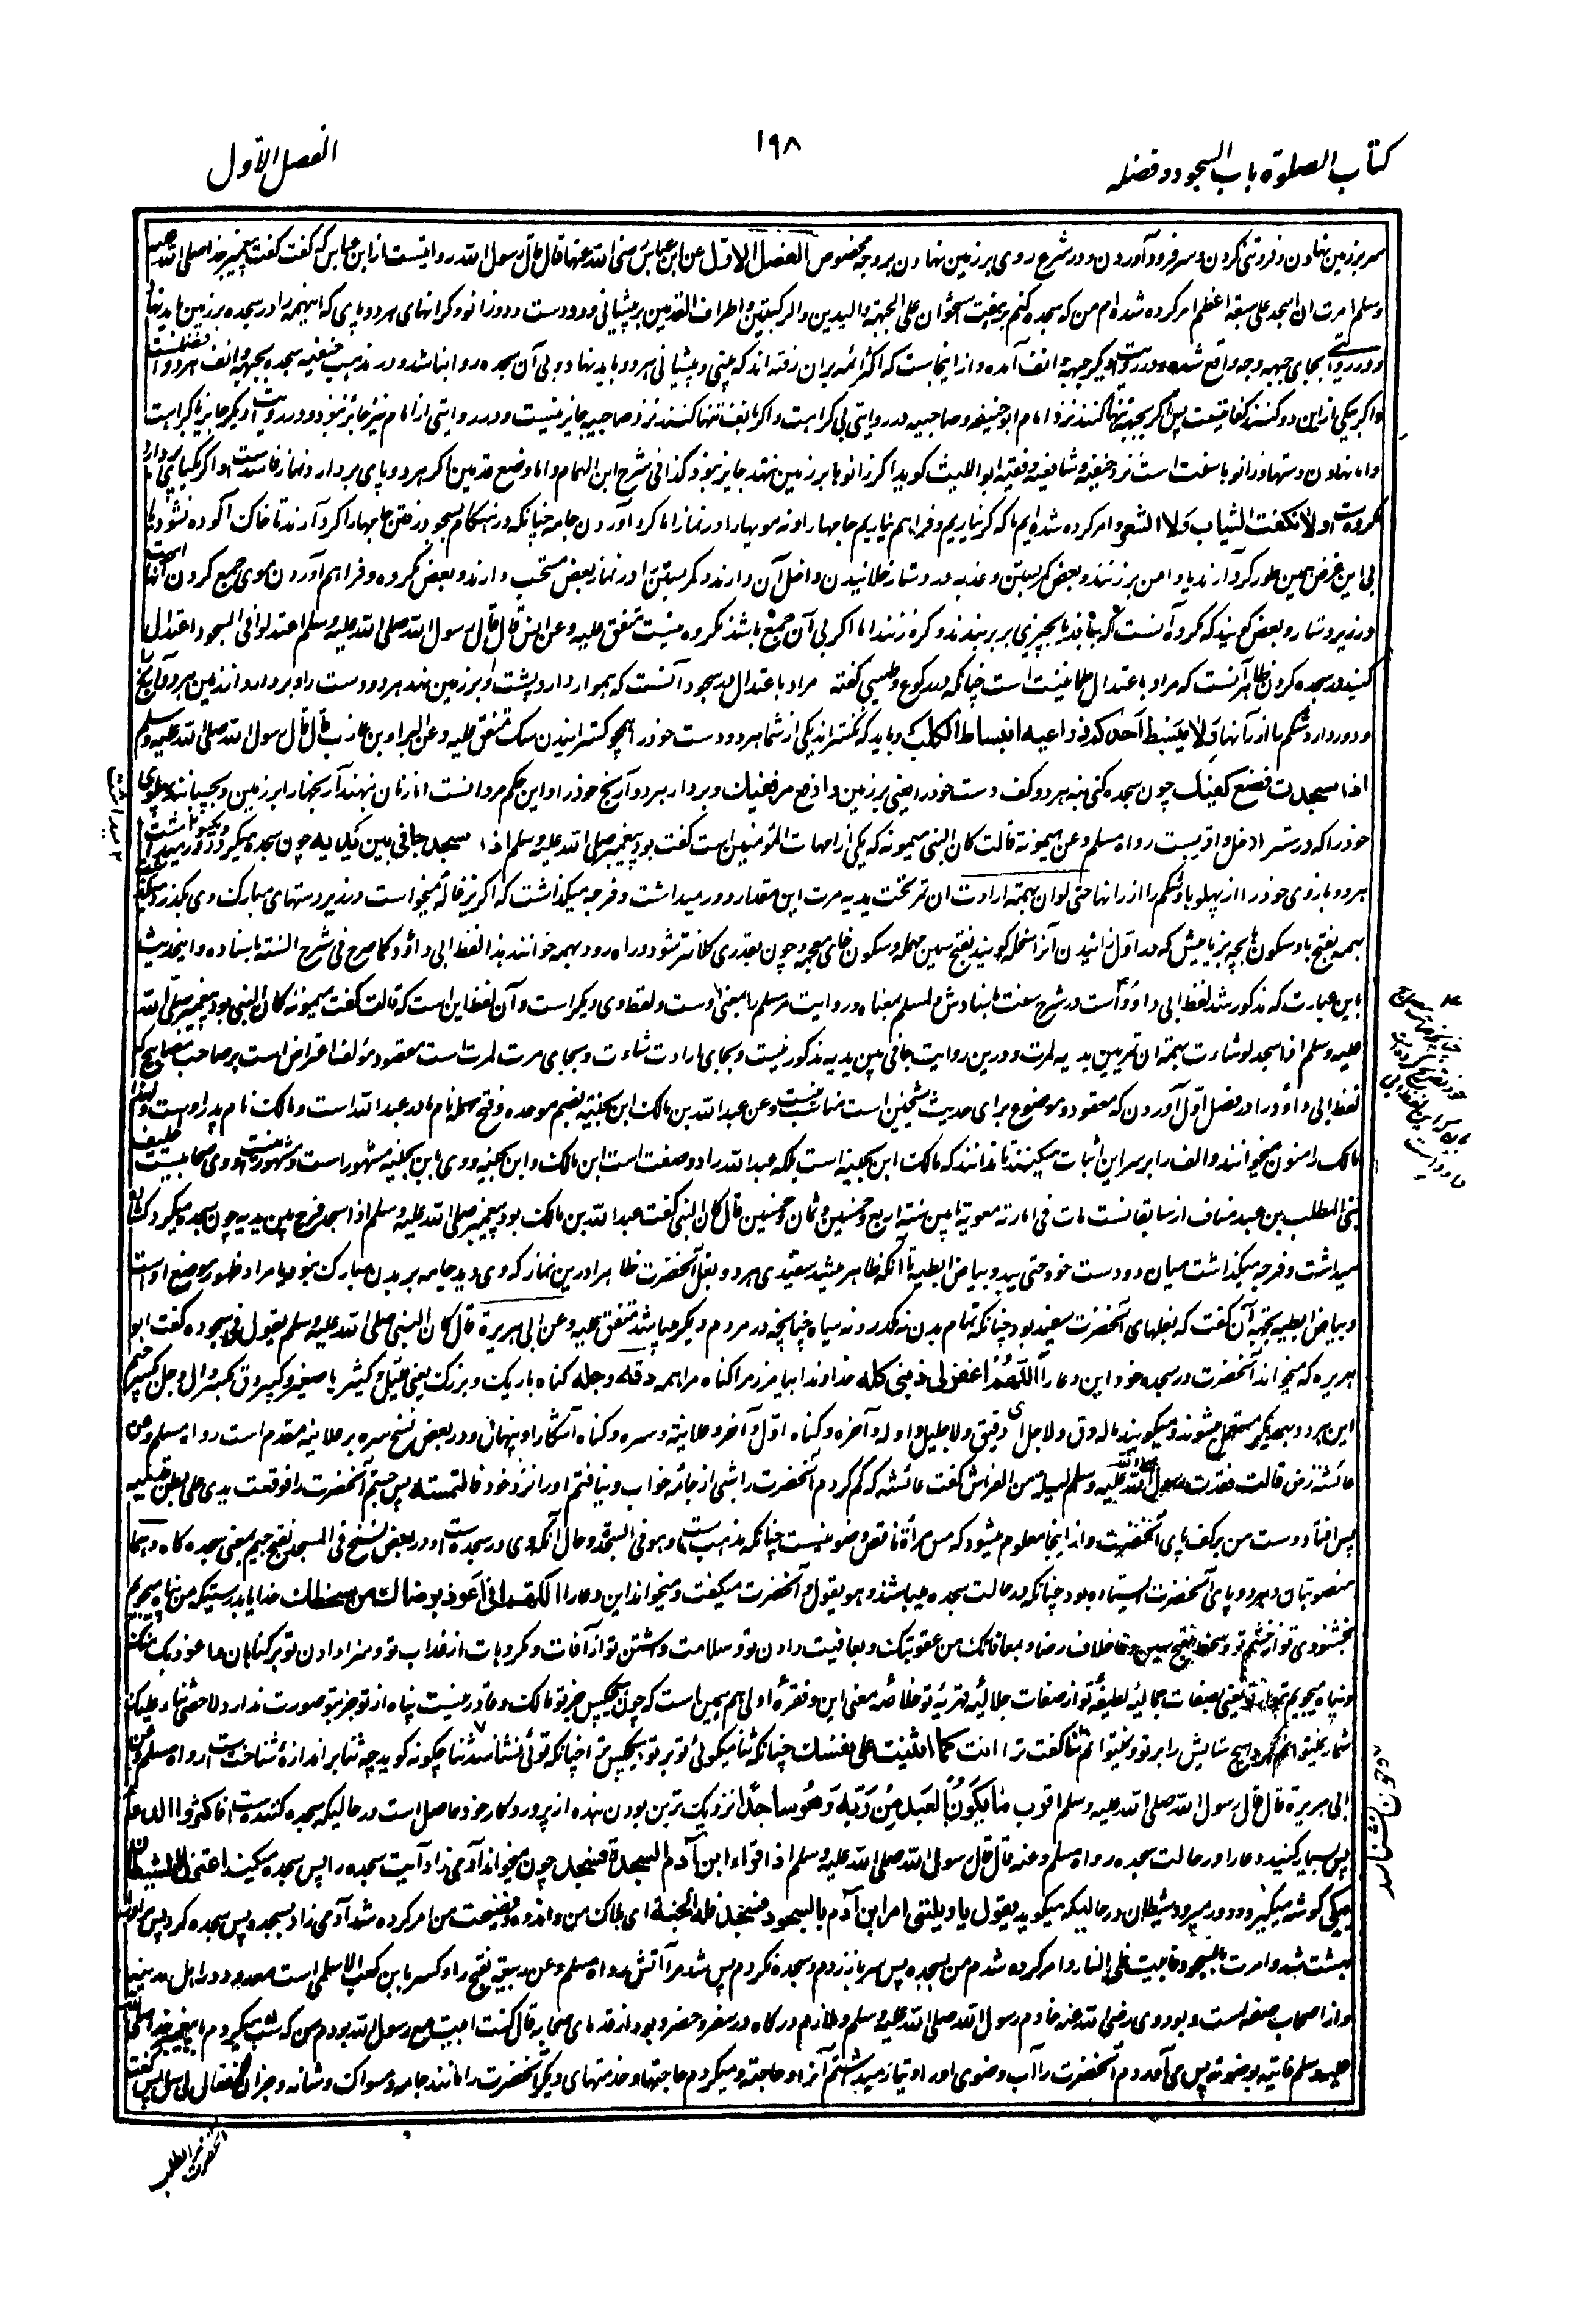 کتاب الصلوة باب السجود و فضله
۱۹۸
الفصل الاول
سر بر زمین نهادن و فروتنی کردن و سر فرود آوردن و در شرع روی بر زمین نهادن بر وجه مخصوص الفصل الاول عن ابن عباس رضی الله عنهما قال قال رسول الله روایتست از ابن عباس که گفت گفت پیغمبر خدا صلی الله علیه
وسلم امرت ان اسجد علی سبعة اعظم امر کرده شده ام من که سجده کنم بر هفت استخوان علی الجبهة والیدین والرکبتین و اطراف القدمین بر پیشانی و دو دست و دو زانو و کرانهای هر دو پای که اینهمه را در سجده بر زمین باید نهاد
و در روایتی بجای جبهه وجه واقع شده و در روایت دیگر جبهه و انف آمده و از اینجاست که اکثر ائمه بران رفته اند که بینی و پیشانی هر دو باید نهاد و بی آن سجده روا نباشد و در مذهب حنفیه سجده بجبهه و انف هر دو افضلست
و اگر بیکی ازین دو کنند کفایتست پس اگر بجبهه تنها کنند نزد امام ابو حنیفه و صاحبیه در روایتی بی کراهت و اگر بانف تنها کنند نزد صاحبیه جایز نیست و در روایتی از امام نیز جائز نبود و در روایت دیگر جایز با کراهت
و اما نهادن دستها و زانوها سنت است نزد حنفیه و شافعیه و فقیه ابو اللیث گوید اگر زانوها بر زمین ننهد جایز نبود و کذا فی شرح ابن الهمام و اما وضع قدمین اگر هر دو پای بردارد نماز فاسد است و اگر یک پای بردارد
مکروه است ولا نکفت الثیاب ولا الشعر و امر کرده شده ایم ما که گرد نیاریم و فراهم نیاریم جامها را و نه مویها را در نماز اما گرد آوردن جامه چنانکه در هنگام بسجود رفتن جامها را گرد آرند تا خاک آلوده نشود یا
بی این غرض همین طور گرد آرند یا دامن بر زنند و بعض کمر بستن و عذبه در دستار خلانیدن داخل آن دارند و کمر بستن را در نماز بعض مستحب دارند و بعض مکروه و فراهم آوردن موی جمع کردن آنها است
در زیر دستار و بعض گویند که مکروه آنست که بتابند یا بچیزی بر بندند و گره زنند اما اگر بی آن جمع باشد مکروه نیست متفق علیه وعن انس قال قال رسول الله صلی الله علیه وسلم اعتدلوا فی السجود اعتدال
کنید در سجده کردن ظاهر آنست که مراد باعتدال طمانینت است چنانکه در رکوع و طیبی گفته مراد باعتدال در سجود آنست که هموار دارد پشت و بر زمین نهد هر دو دست را و بردارد از زمین هر دو آرنج را
و دور دارد شکم را از رانها ولا ینبسط احدکم ذراعیه انبساط الکلب و باید که نگستراند یکی از شما هر دو دست خود را همچو گسترانیدن سگ متفق علیه وعن البراء بن عازب قال قال رسول الله صلی الله علیه وسلم
اذا سجدت فضع کفیک چون سجده کنی بنه هر دو کف دست خود را یعنی بر زمین وارفع مرفقیک و بردار هر دو آرنج خود را و این حکم مردانست اما زنان نهند آرنجها را بر زمین و بچسپانند بپهلوی
خود را که در ستر ادخل و اقربست رواه مسلم وعن میمونة قالت کان النبی میمونه که یکی از امهات المؤمنین است گفت بود پیغمبر صلی الله علیه وسلم اذا سجد جافی بین یدیه چون سجده میکرد دور میداشت
هر دو بازوی خود را از پهلوها و شکم را از رانها حتی لو ان بهمة ارادت ان تمر تحت یدیه مرت این مقدار دور میداشت و فرجه میگذاشت که اگر بزغاله میخواست در زیر دستهای مبارک وی بگذرد میگذشت
بهمه بفتح با و سکون ها بچه بز یا میش که در اول زائیدن آنرا سخله گویند بفتح سین مهمله و سکون خای معجمه و چون بقدری کلانتر شود و راه رود بهمه خوانند هذا لفظ ابی داؤد کما صرح فی شرح السنة باسناده و اینحدیث
باین عبارت که مذکور شد لفظ ابی داؤد است در شرح سنت باسنادش ولمسلم بمعناه و روایت مر مسلم را بمعنی اوست و لفظ وی دیگر است و آن لفظ این است که قالت گفت میمونه کان النبی بود پیغمبر صلی الله
علیه وسلم اذا سجد لو شاءت بهمة ان تمر بین یدیه لمرت و درین روایت جافی بین یدیه مذکور نیست و بجای ارادت شاءت و بجای مرت لمرت است مقصود مؤلف اعتراض است بر صاحب مصابیح که
لفظ ابی داؤد را در فصل اول آوردن که معقود و موضوع برای حدیث شیخین است مناسب نیست وعن عبد الله بن مالک ابن بحینة بضم موحده و فتح مهمله نام مادر عبد الله است و مالک نام پدر اوست ولهذا
مالک را منون میخوانند و الف را بر سر ابن اثبات میکنند تا ندانند که مالک ابن بحینه است بلکه عبد الله را دو صفت است ابن مالک و ابن بحینه و وی بابن بحینه مشهور است و وی صحابیست حلیف
بنی المطلب بن عبد مناف از سابقانست مات فی امارة معویة ما بین سنة اربع و خمسین و ثمان و خمسین قال کان النبی گفت عبد الله بن مالک بود پیغمبر صلی الله علیه وسلم اذا سجد فرج بین یدیه چون سجده میکرد کشاده
میداشت و فرجه میگذاشت میان دو دست خود حتی یبدو بیاض ابطیه تا آنکه ظاهر میشد سفیدی هر دو بغل آنحضرت ظاهرا درین نماز که وی دید جامه بر بدن مبارک نبود یا مراد ظهور موضع اوست
و بیاض ابطیه بجهت آن گفت که بغلهای آنحضرت سفید بود چنانکه تمام بدن نه مکدر و نه سیاه چنانچه در مردم دیگر میباشد متفق علیه وعن ابی هریرة قال کان النبی صلی الله علیه وسلم یقول فی سجوده گفت ابو
هریره که میخواند آنحضرت در سجده خود این دعا را اللهم اغفر لی ذنبی کله خداوندا بیامرز مرا گناه مرا همه دقه وجله گناه باریک و بزرگ یعنی قلیل و کثیر یا صغیر و کبیر و دق بکسر دال و جل بکسر جیم
این هر دو بهم دیگر مستعمل میشوند و میگویند ماله دق ولا جل ای دقیق ولا جلیل و اوله وآخره و گناه اول و آخر و علانیته وسره و گناه آشکارا و پنهانی و در بعض نسخ سره بر علانیته مقدم است رواه مسلم وعن
عائشة رض قالت فقدت رسول الله صلی الله علیه وسلم لیلة من الفراش گفت عائشه که گم کردم آنحضرت را شبی از جامه خواب و نیافتم او را نزد خود فالتمسته پس جستم آنحضرت را فوقعت یدی علی بطن قدمیه
پس افتاد دست من بر کف پای آنحضرت و از اینجا معلوم میشود که مس مرأة ناقض وضو نیست چنانکه مذهب ماست وهو فی السجدة و حال آنکه وی در سجده است و در بعض نسخ فی المسجد بفتح جیم بمعنی سجده گاه وهما
منصوبتان و هر دو پای آنحضرت ایستاده بود چنانکه در حالت سجده میباشد وهو یقول و آنحضرت میگفت و میخواند این دعا را اللهم انی اعوذ برضاک من سخطک خدایا بدرستیکه من پناه میجویم
بخشنودی تو از خشم تو و سخط بفتح سین و خا خلاف رضا و بمعافاتک من عقوبتک و بعافیت دادن تو و سلامت داشتن تو از آفات و مکروهات از عذاب تو و سزا دادن تو بر گناهان و اعوذ بک منک
و پناه میجویم بتو از تو یعنی بصفات جمالیه لطیفه تو از صفات جلالیه قهریه تو خلاصه معنی این دو فقره اولی هم همین است که چون هیچکس جز تو مالک و قادر نیست پناه از تو جز بتو صورت ندارد لا احصی ثناء علیک
شمار نمیتوانم کرد هیچ ستایش را بر تو و نمیتوانم ثنا گفت ترا انت کما اثنیت علی نفسک چنانکه ثنا میگوئی تو بر تو هیچکس ترا چنانکه توئی نشناسد ثنا چگونه گوید چه ثنا بر اندازه شناختست رواه مسلم وعن
ابی هریرة قال قال رسول الله صلی الله علیه وسلم اقرب ما یکون العبد من ربه وهو ساجد نزدیک ترین بودن بنده از پروردگار خود حاصل است در حالیکه سجده کننده است فاکثروا الدعاء
پس بسیار کنید دعا را در حالت سجده رواه مسلم وعنه قال قال رسول الله صلی الله علیه وسلم اذا قرأ ابن آدم السجدة فسجد چون میخواند آدمی زاد آیت سجده را پس سجده میکند اعتزل الشیطان
یبکی گوشه میگیرد و دور میرود شیطان در حالیکه میگرید یقول یا ویلتی امر ابن آدم بالسجود فسجد فله الجنة ای هلاک من و اندوه و فضیحت من امر کرده شد آدمی زاد بسجده پس سجده کرد پس مر او را
بهشت شد و امرت بالسجود فابیت فلی النار و امر کرده شدم من بسجده پس سر باز زدم و سجده نکردم پس شد مرا آتش رواه مسلم وعن ربیعة بفتح را و کسر با بن کعب الاسلمی است معدود در اهل مدینه
و از اصحاب صفه است و بود وی رضی الله عنه خادم رسول الله صلی الله علیه وسلم و ملازم درگاه در سفر و حضر و بود از قدمای صحابه قال کنت ابیت مع رسول الله بودم من که شب میکردم با پیغمبر خدا صلی الله
علیه وسلم فاتیته بوضوئه پس می آوردم آنحضرت را آب وضوی او را و تیار میداشتم آنرا و حاجته و میکردم حاجتها و خدمتهای دیگر آنحضرت را مانند جامه و مسواک و شانه و جز آن فقال لی سل پس گفت
آنحضرت مرا طلب